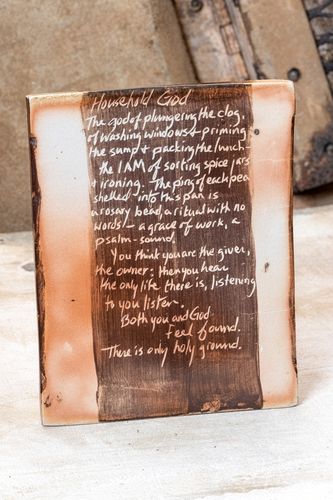 Household God
The god of plungering the clog,
of washing windows + priming
the sump + packing the lunch —
the I AM of sorting spice jars
+ ironing. The ping of each pea
shelled into this pan is
a rosary bead, a ritual with no
words — a grace of work, a
psalm-sound.
You think you are the giver,
the owner: then you hear
the only life there is, listening
to you listen.
Both you and God
feel found.
There is only holy ground.